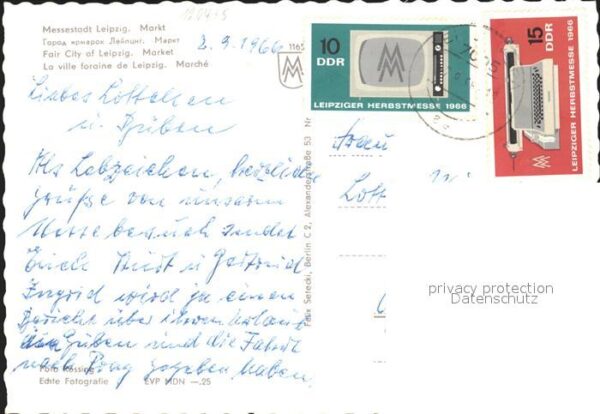 Messestadt Leipzig. Markt
Город ярмарок Лейпциг. Маркт
Fair City of Leipzig. Market
La ville foraine de Leipzig. Marché
2.9.1966
1165
10
DDR
LEIPZIGER HERBSTMESSE 1966
15
DDR
LEIPZIGER HERBSTMESSE 1966
Liebes Lottchen
u. Guben
Als Lebzeichen, herzliche
Grüße von unserm
Messebesuch sendet
Euch
Ingrid wird ja einen
Bericht über ihren
Guben und die Fahrt
nach Prag gegeben haben.
Frau
Lott
Foto Rössing
Echte Fotografie EVP MDN —.25
Felix Setecki, Berlin C 2, Alexanderstraße 53 Nr
privacy protection
Datenschutz